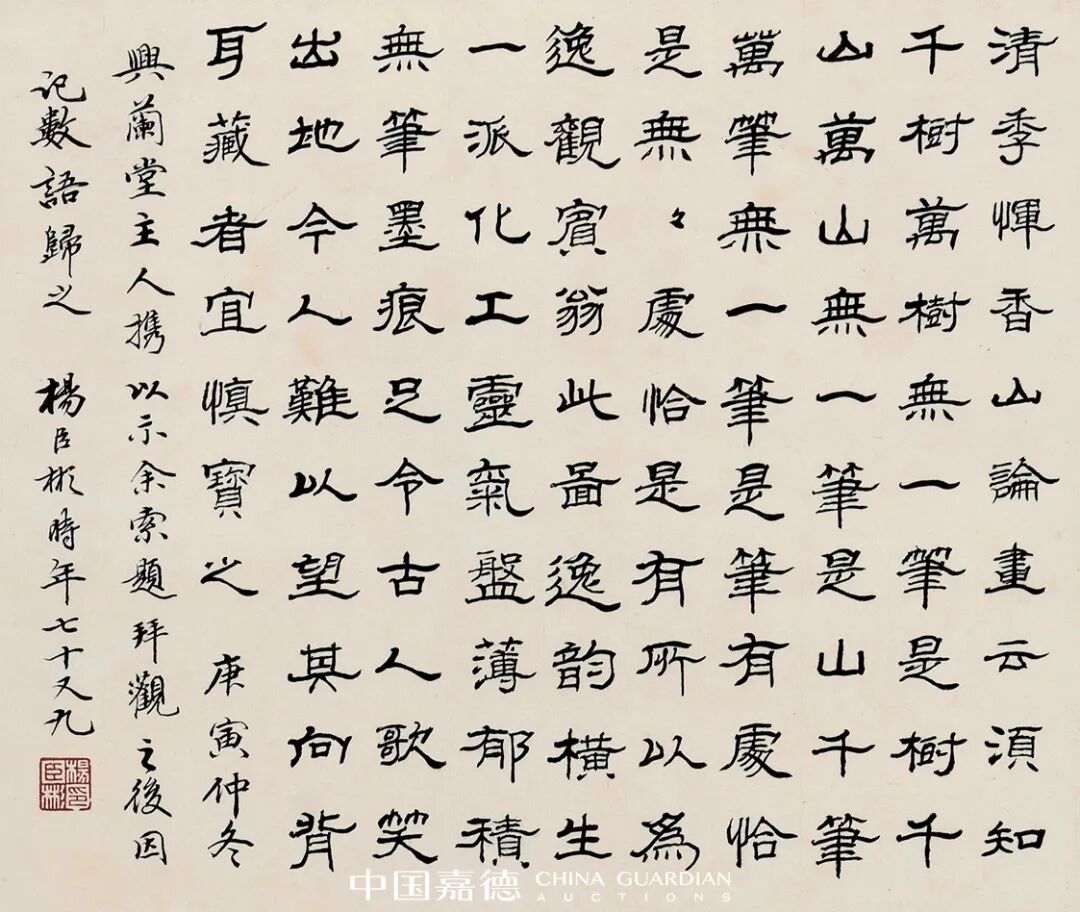 清季惲香山論畫云須知
千樹萬樹無一筆是樹千
山萬山無一筆是山千筆
萬筆無一筆是筆有處恰
是無々處恰是有所以爲
逸觀賓翁此啚逸韵橫生
一派化工靈氣盤薄郁積
無筆墨痕足令古人歌笑
出地今人難以望其向背
耳藏者宜慎寶之 庚寅仲冬
興蘭堂主人携以示余索題拜觀之後因
記數語歸之 楊臣彬時年七十又九
楊印臣彬
中国嘉德 CHINA GUARDIAN
AUCTIONS